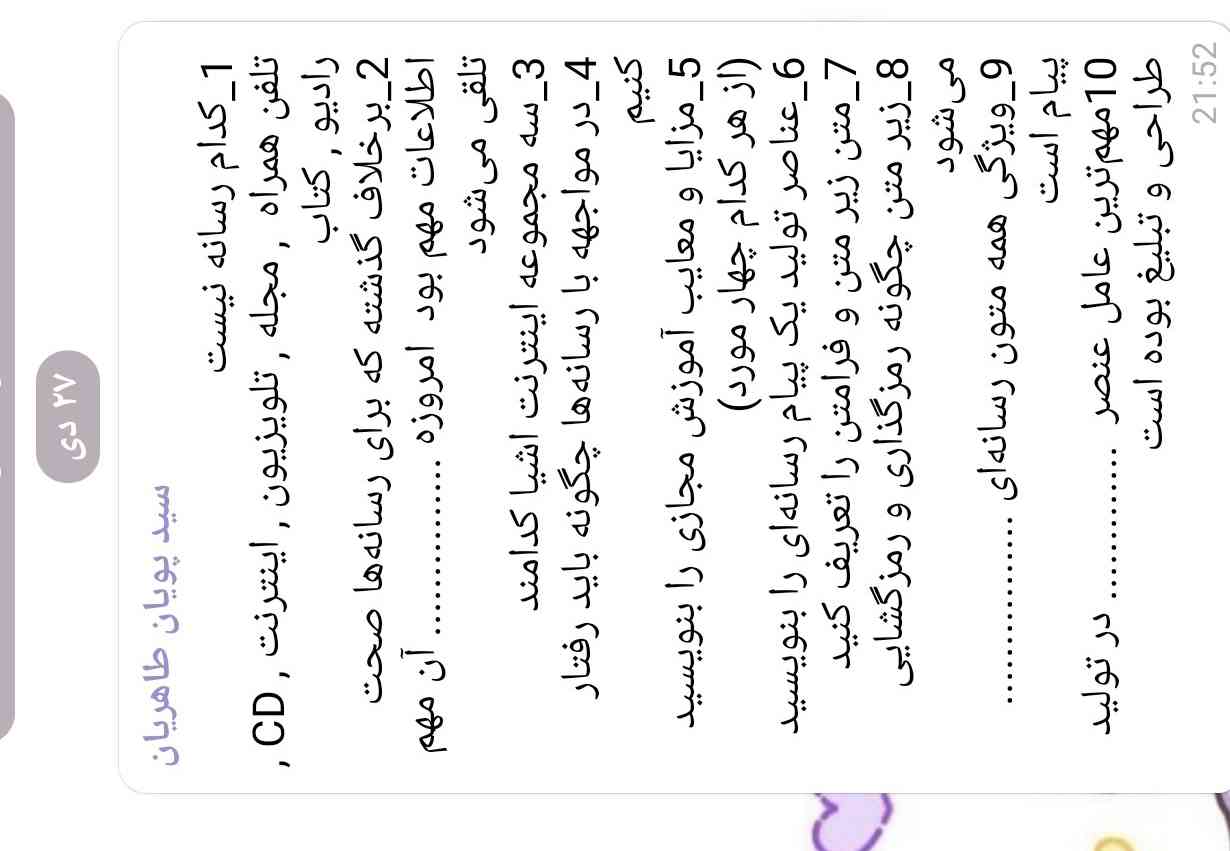 ۲۷ دی
سید پویان طاهریان
1_کدام رسانه نیست
تلفن همراه , مجله , تلویزیون , اینترنت , CD ,
رادیو , کتاب
2_برخلاف گذشته که برای رسانه‌ها صحت
اطلاعات مهم بود امروزه ................ آن مهم
تلقی می‌شود
3_سه مجموعه اینترنت اشیا کدامند
4_در مواجهه با رسانه‌ها چگونه باید رفتار
کنیم
5_مزایا و معایب آموزش مجازی را بنویسید
(از هر کدام چهار مورد)
6_عناصر تولید یک پیام رسانه‌ای را بنویسید
7_متن زیر متن و فرامتن را تعریف کنید
8_زیر متن چگونه رمزگذاری و رمزگشایی
می‌شود
9_ویژگی همه متون رسانه‌ای .................
پیام است
10مهم‌ترین عامل عنصر .............. در تولید
طراحی و تبلیغ بوده است
21:52